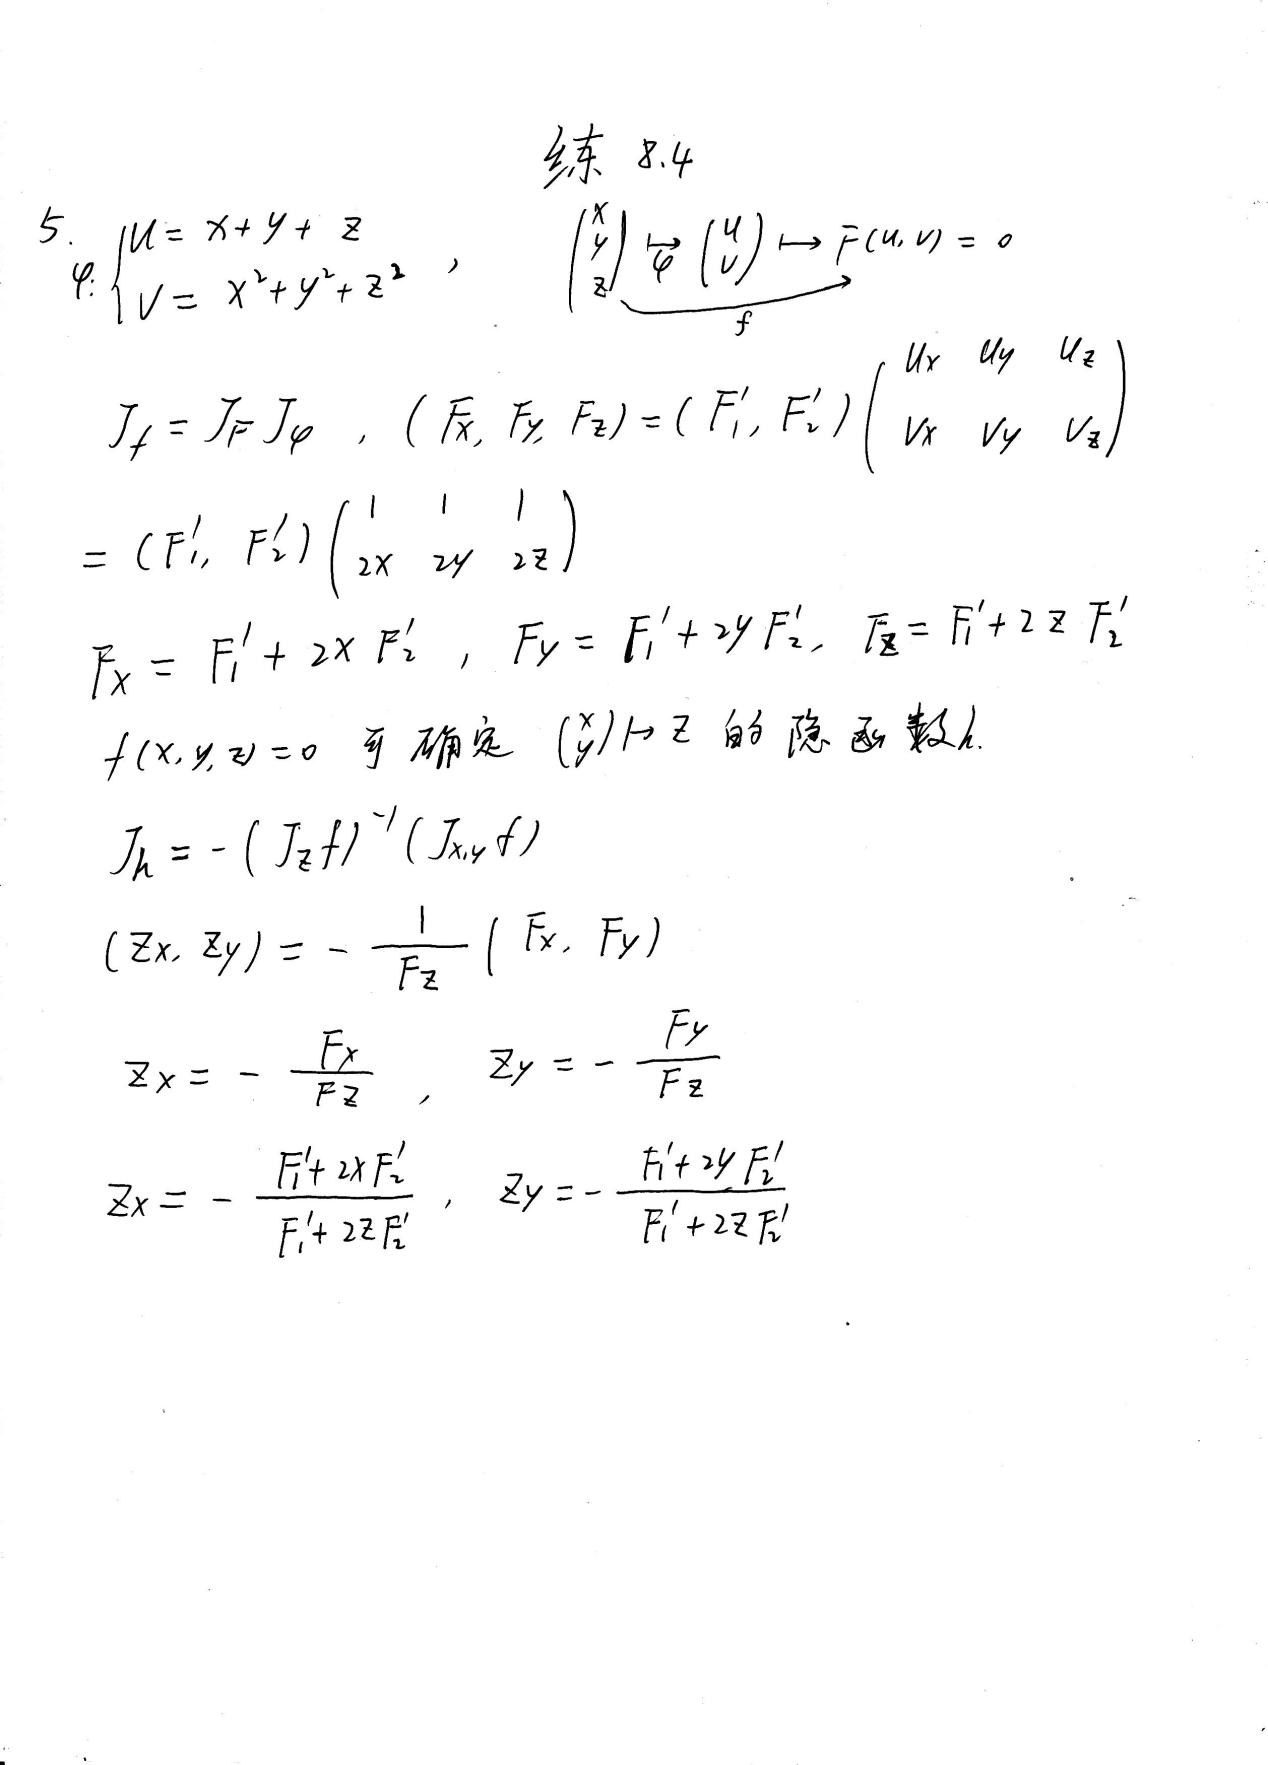 练 8.4
5. φ: { u = x + y + z
v = x² + y² + z² , (x y z) ↦φ (u v) ↦ F(u, v) = 0
f
J_f = J_F J_φ , (F_x, F_y, F_z) = (F₁′, F₂′) ( u_x u_y u_z
v_x v_y v_z )
= (F₁′, F₂′) ( 1 1 1
2x 2y 2z )
F_x = F₁′ + 2x F₂′ , F_y = F₁′ + 2y F₂′, F_z = F₁′ + 2z F₂′
f(x, y, z) = 0 可确定 (x y) ↦ z 的隐函数h.
J_h = -(J_z f)⁻¹ (J_{x,y} f)
(z_x, z_y) = - 1/F_z (F_x, F_y)
z_x = - F_x/F_z , z_y = - F_y/F_z
z_x = - (F₁′ + 2x F₂′)/(F₁′ + 2z F₂′) , z_y = - (F₁′ + 2y F₂′)/(F₁′ + 2z F₂′)